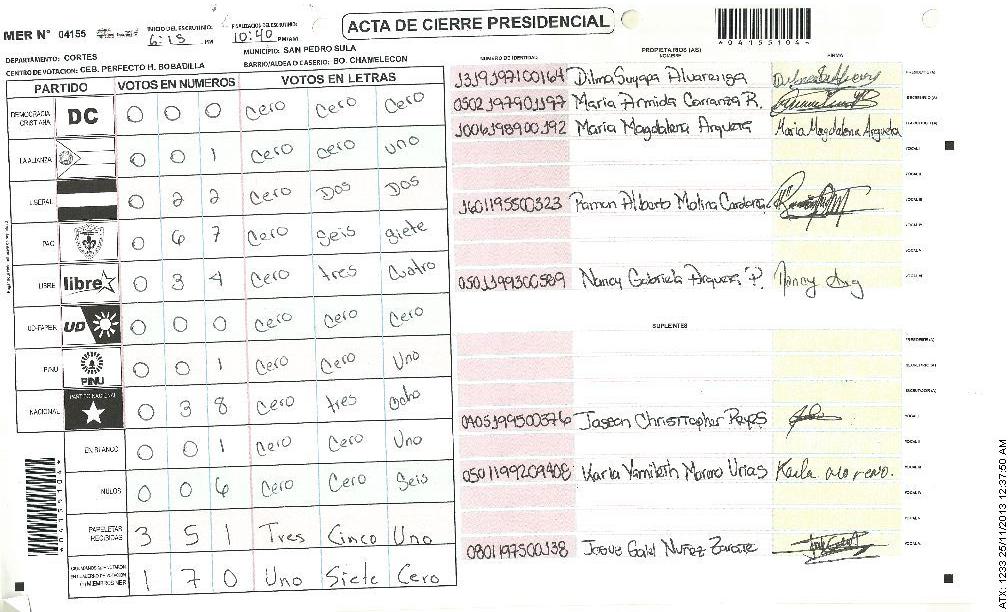 ACTA DE CIERRE PRESIDENCIAL
MER N° 04155
INICIO DEL ESCRUTINIO: 6:15 PM
FINALIZACION DEL ESCRUTINIO: 10:40 PM/AM
*04155104*
DEPARTAMENTO: CORTES
MUNICIPIO: SAN PEDRO SULA
CENTRO DE VOTACION: CEB. PERFECTO H. BOBADILLA
BARRIO/ALDEA O CASERIO: BO. CHAMELECON
PARTIDO VOTOS EN NUMEROS VOTOS EN LETRAS
DEMOCRACIA CRISTIANA DC 0 0 0 Cero Cero Cero
LA ALIANZA 0 0 1 Cero Cero Uno
LIBERAL 0 2 2 Cero Dos Dos
PAC 0 6 7 Cero Seis Siete
LIBRE libre 0 3 4 Cero Tres Cuatro
UD-FAPER UD 0 0 0 Cero Cero Cero
PINU PINU 0 0 1 Cero Cero Uno
NACIONAL PARTIDO NACIONAL 0 3 8 Cero Tres Ocho
EN BLANCO 0 0 1 Cero Cero Uno
NULOS 0 0 6 Cero Cero Seis
PAPELETAS RECIBIDAS 3 5 1 Tres Cinco Uno
1 7 0 Uno Siete Cero
*04155104*
PROPIETARIOS (AS)
NUMERO DE IDENTIDAD NOMBRE FIRMA
1319197100164 Dilma Suyapa Alvarenga PRESIDENTE (A)
0502197901197 Maria Armida Carranza R. SECRETARIO (A)
1006198900192 Maria Magdalena Argueta Maria Magdalena Argueta ESCRUTADOR (A)
VOCAL I
VOCAL II
1601195500323 Ramon Alberto Molina Cardona VOCAL III
VOCAL IV
VOCAL V
0501199300589 Nancy Gabriela Argueta P. Nancy Arg VOCAL VI
SUPLENTES
PRESIDENTE (A)
SECRETARIO (A)
ESCRUTADOR (A)
0405199500376 Jasson Christopher Reyes VOCAL I
VOCAL II
0501199209408 Karla Yamileth Moreno Urias Karla Moreno. VOCAL III
VOCAL IV
VOCAL V
0801197500138 Josue Galel Nuñez Zarate VOCAL VI
ATX: 1233 25/11/2013 12:37:50 AM